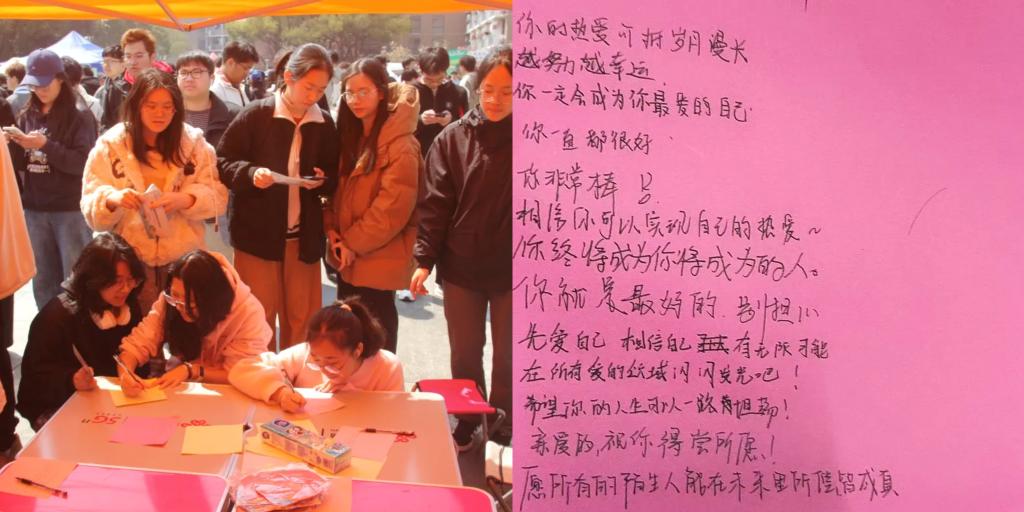 5G
你的热爱可抵岁月漫长
越努力越幸运
你一定会成为你最爱的自己.
你一直都很好.
你非常棒
相信你可以实现自己的热爱~
你终将成为你将成为的人。
你就是最好的.别担心
先爱自己 相信自己 有无限可能
在所有爱的领域闪闪发光吧!
希望你的人生可以一路有坦荡!
亲爱的,祝你得尝所愿!
愿所有的陌生人能在未来里所愿皆成真